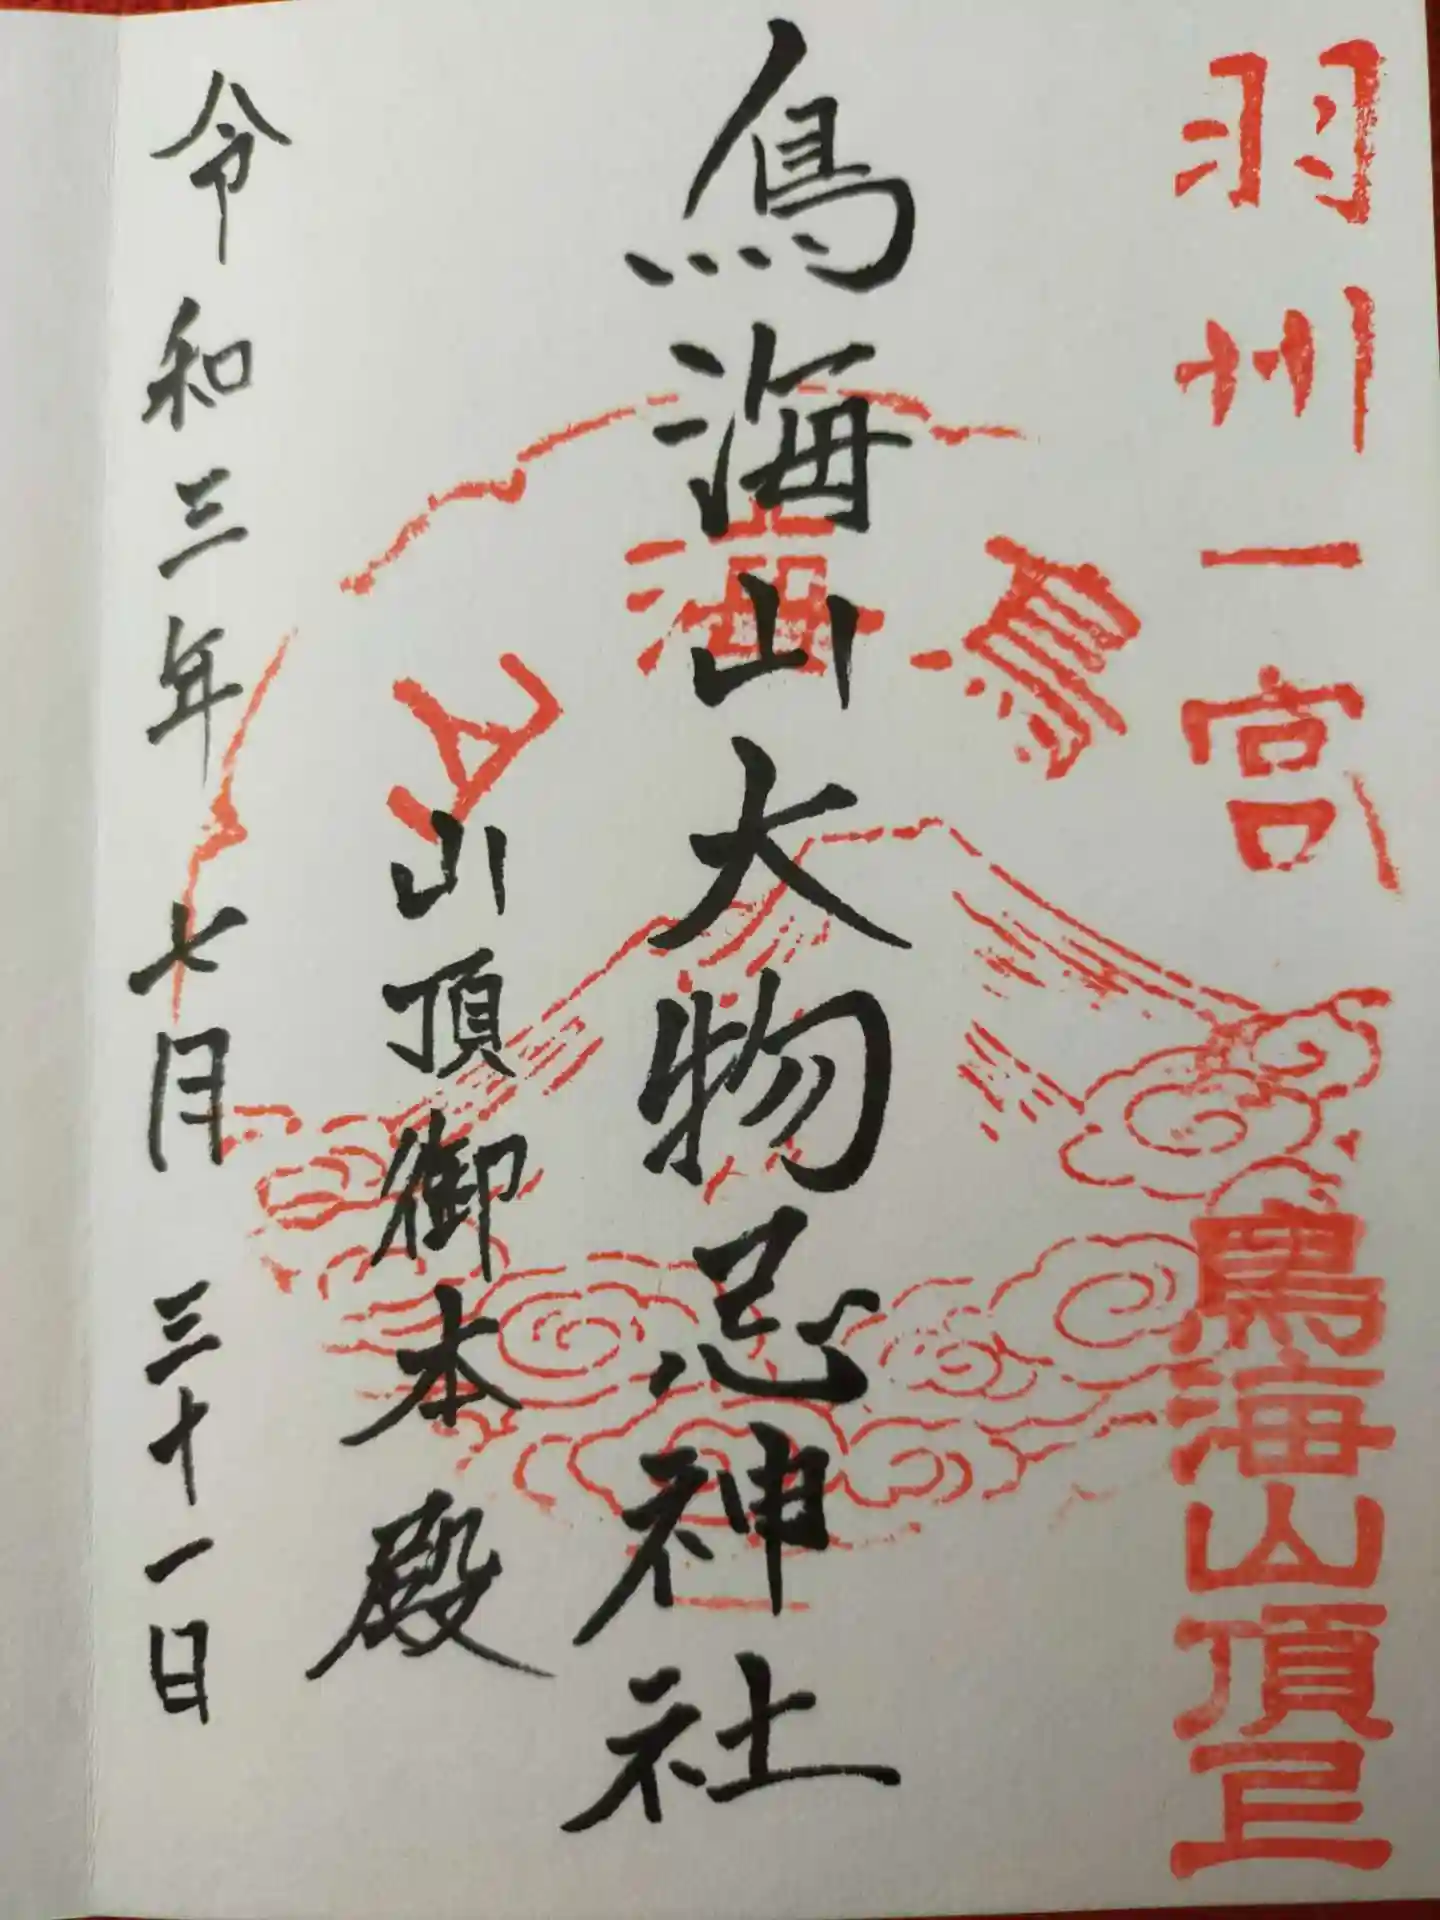 羽州一宮
鳥海山頂上
鳥海山
鳥海山大物忌神社
山頂御本殿
令和三年七月三十一日